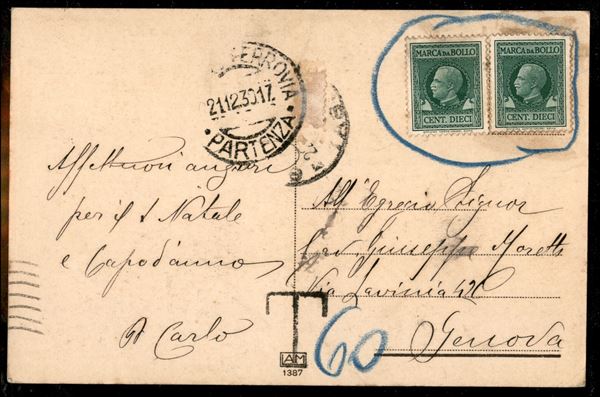 MARCA DA BOLLO
CENT. DIECI
MARCA DA BOLLO
CENT. DIECI
FERROVIA
21.12.30.17
PARTENZA
Affettuosi auguri
per il S Natale
e Capodanno
Carlo
All' Egregio Signor
Cav Giuseppe Moretti
Via Lavinia
Genova
T
60
AM
1387